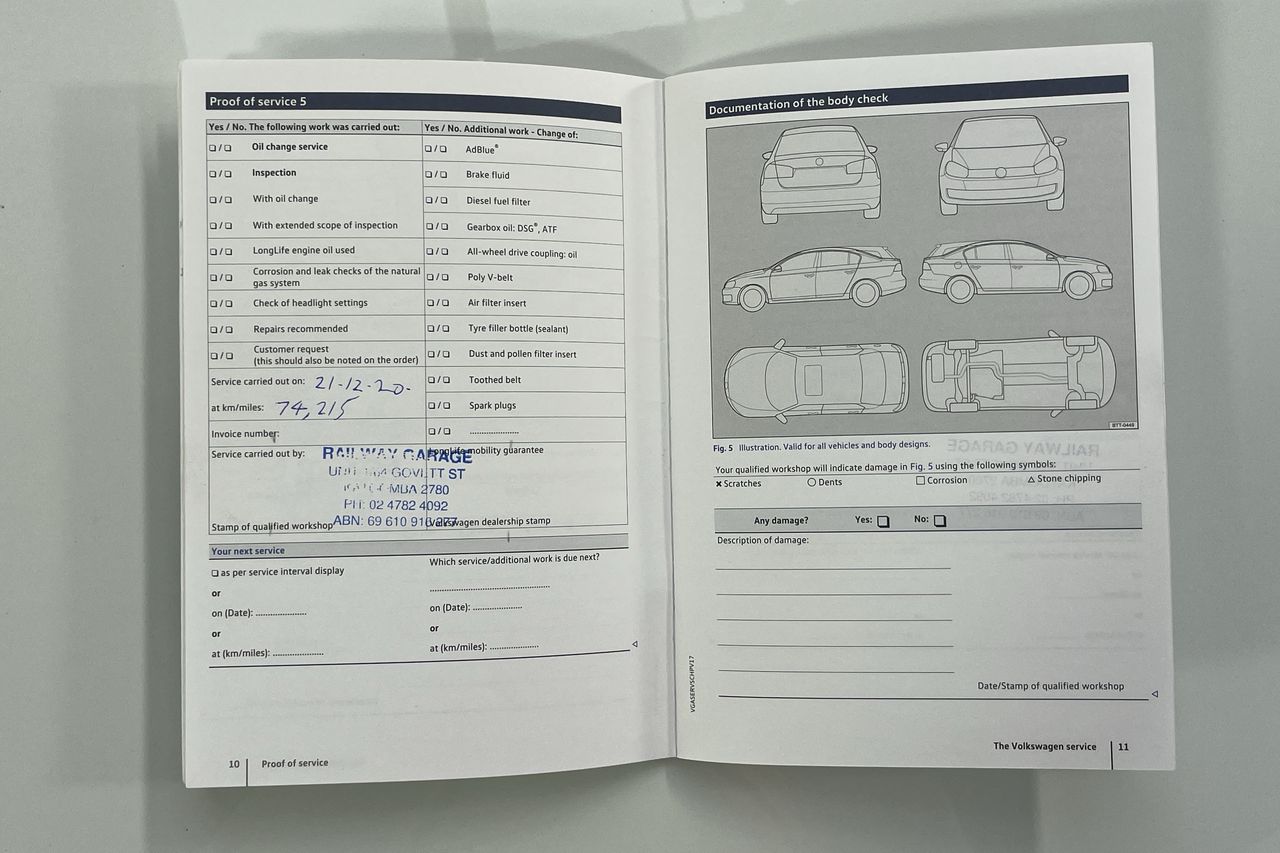 Proof of service 5
Yes / No. The following work was carried out:
❏ / ❏ Oil change service
❏ / ❏ Inspection
❏ / ❏ With oil change
❏ / ❏ With extended scope of inspection
❏ / ❏ LongLife engine oil used
❏ / ❏ Corrosion and leak checks of the natural
gas system
❏ / ❏ Check of headlight settings
❏ / ❏ Repairs recommended
❏ / ❏ Customer request
(this should also be noted on the order)
Service carried out on: 21-12-20.
at km/miles: 74,215
Invoice number:
Service carried out by:
RAILWAY GARAGE
GOVETT ST
2780
PH: 02 4782 4092
ABN: 69 610 916
Stamp of qualified workshop
Yes / No. Additional work - Change of:
❏ / ❏ AdBlue®
❏ / ❏ Brake fluid
❏ / ❏ Diesel fuel filter
❏ / ❏ Gearbox oil: DSG®, ATF
❏ / ❏ All-wheel drive coupling: oil
❏ / ❏ Poly V-belt
❏ / ❏ Air filter insert
❏ / ❏ Tyre filler bottle (sealant)
❏ / ❏ Dust and pollen filter insert
❏ / ❏ Toothed belt
❏ / ❏ Spark plugs
❏ / ❏ ..................
LongLife mobility guarantee
Volkswagen dealership stamp
Your next service
❏ as per service interval display
or
on (Date): ...................
or
at (km/miles): ...................
Which service/additional work is due next?
.............................................
on (Date): ..................
or
at (km/miles): ..................
10 Proof of service
Documentation of the body check
BTT-0449
Fig. 5 Illustration. Valid for all vehicles and body designs.
Your qualified workshop will indicate damage in Fig. 5 using the following symbols:
✖ Scratches ○ Dents □ Corrosion △ Stone chipping
Any damage? Yes: ❏ No: ❏
Description of damage:
Date/Stamp of qualified workshop
VGASERVSCHPV17
The Volkswagen service 11